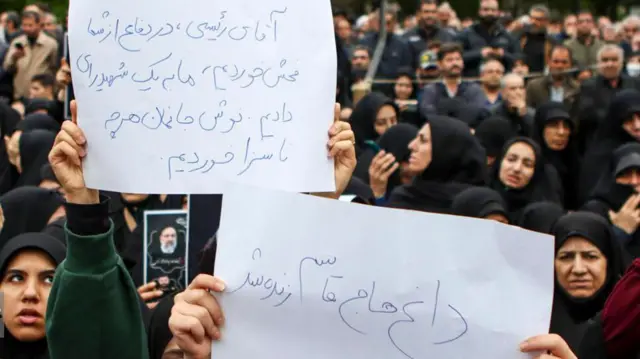 آقای رئیسی، در دفاع از شما
فحش خوردیم، ما به یک شهید رای
دادیم. نوش جانمان هرچه
ناسزا خوردیم.
داغ حاج قاسم زنده شد